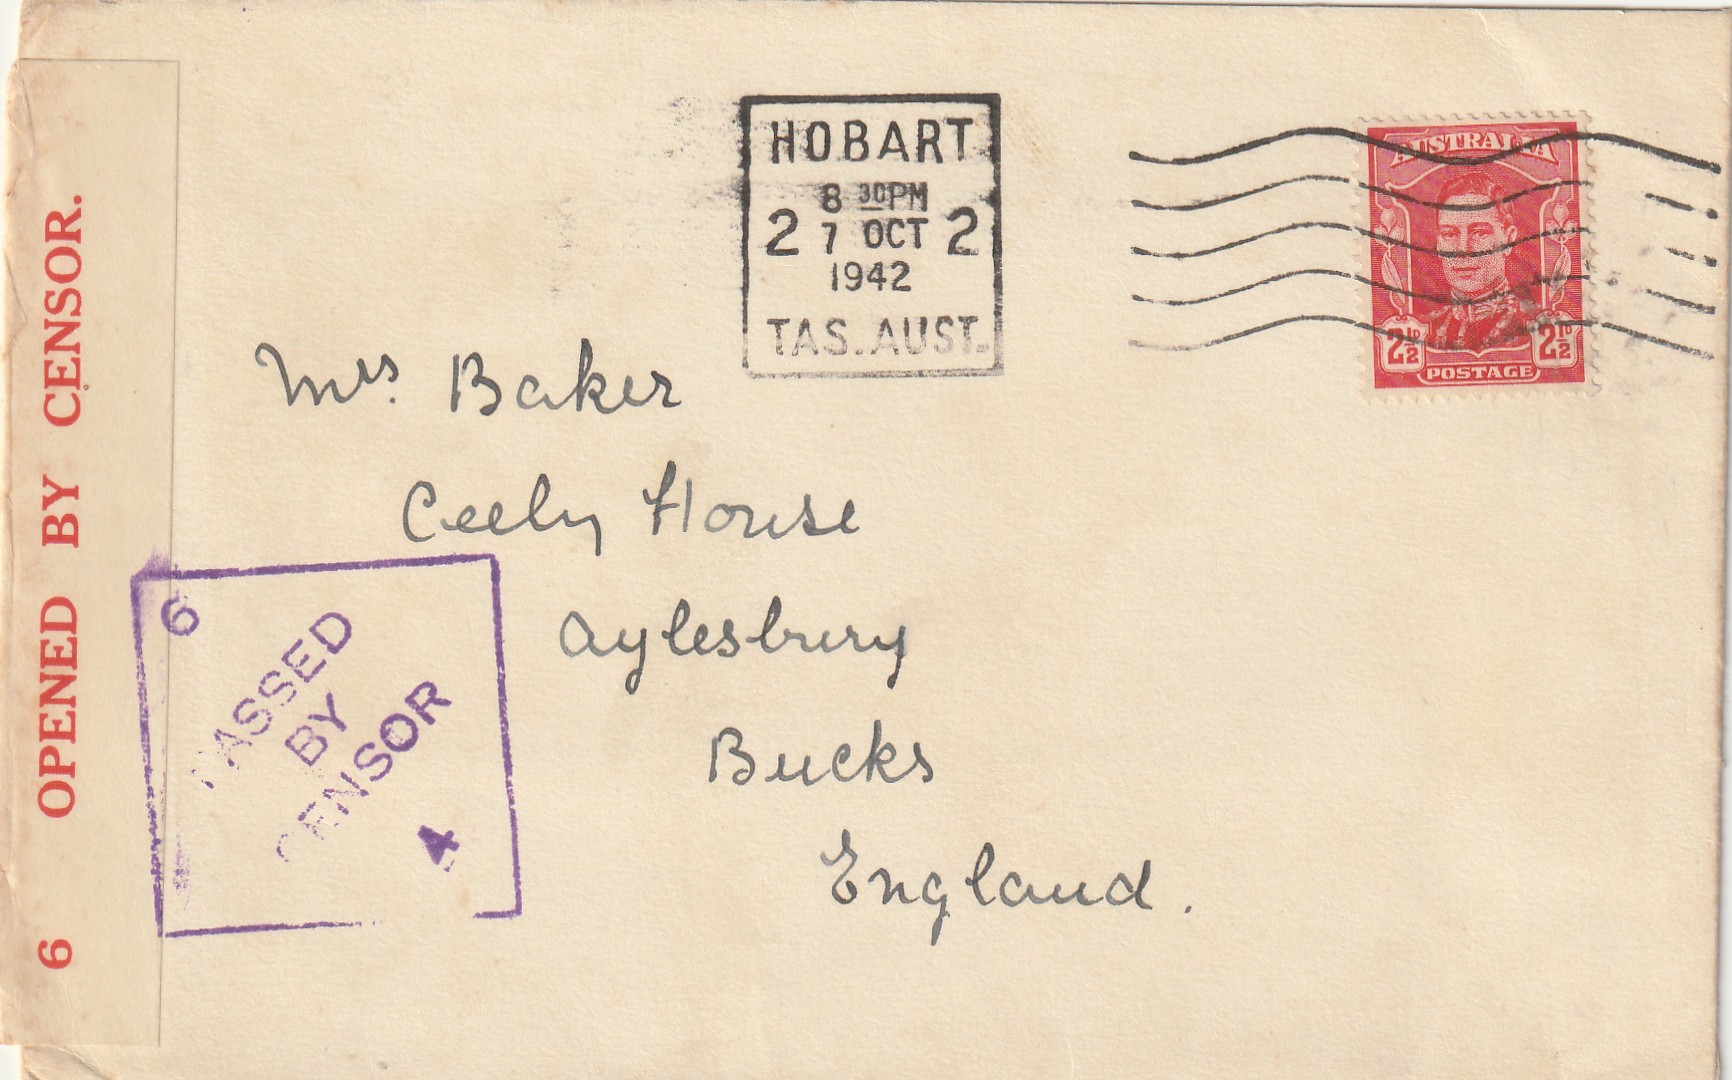 6 OPENED BY CENSOR.
HOBART
8 30PM
2 7 OCT 2
1942
TAS. AUST.
AUSTRALIA
2½D 2½D
POSTAGE
Mrs. Baker
Ceely House
Aylesbury
Bucks
England.
6
PASSED
BY
CENSOR
4